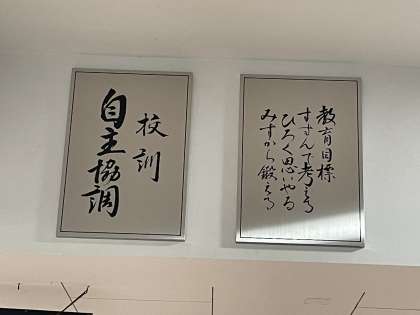 校訓
自主協調
教育目標
すすんで考える
ひろく思いやる
みずから鍛える